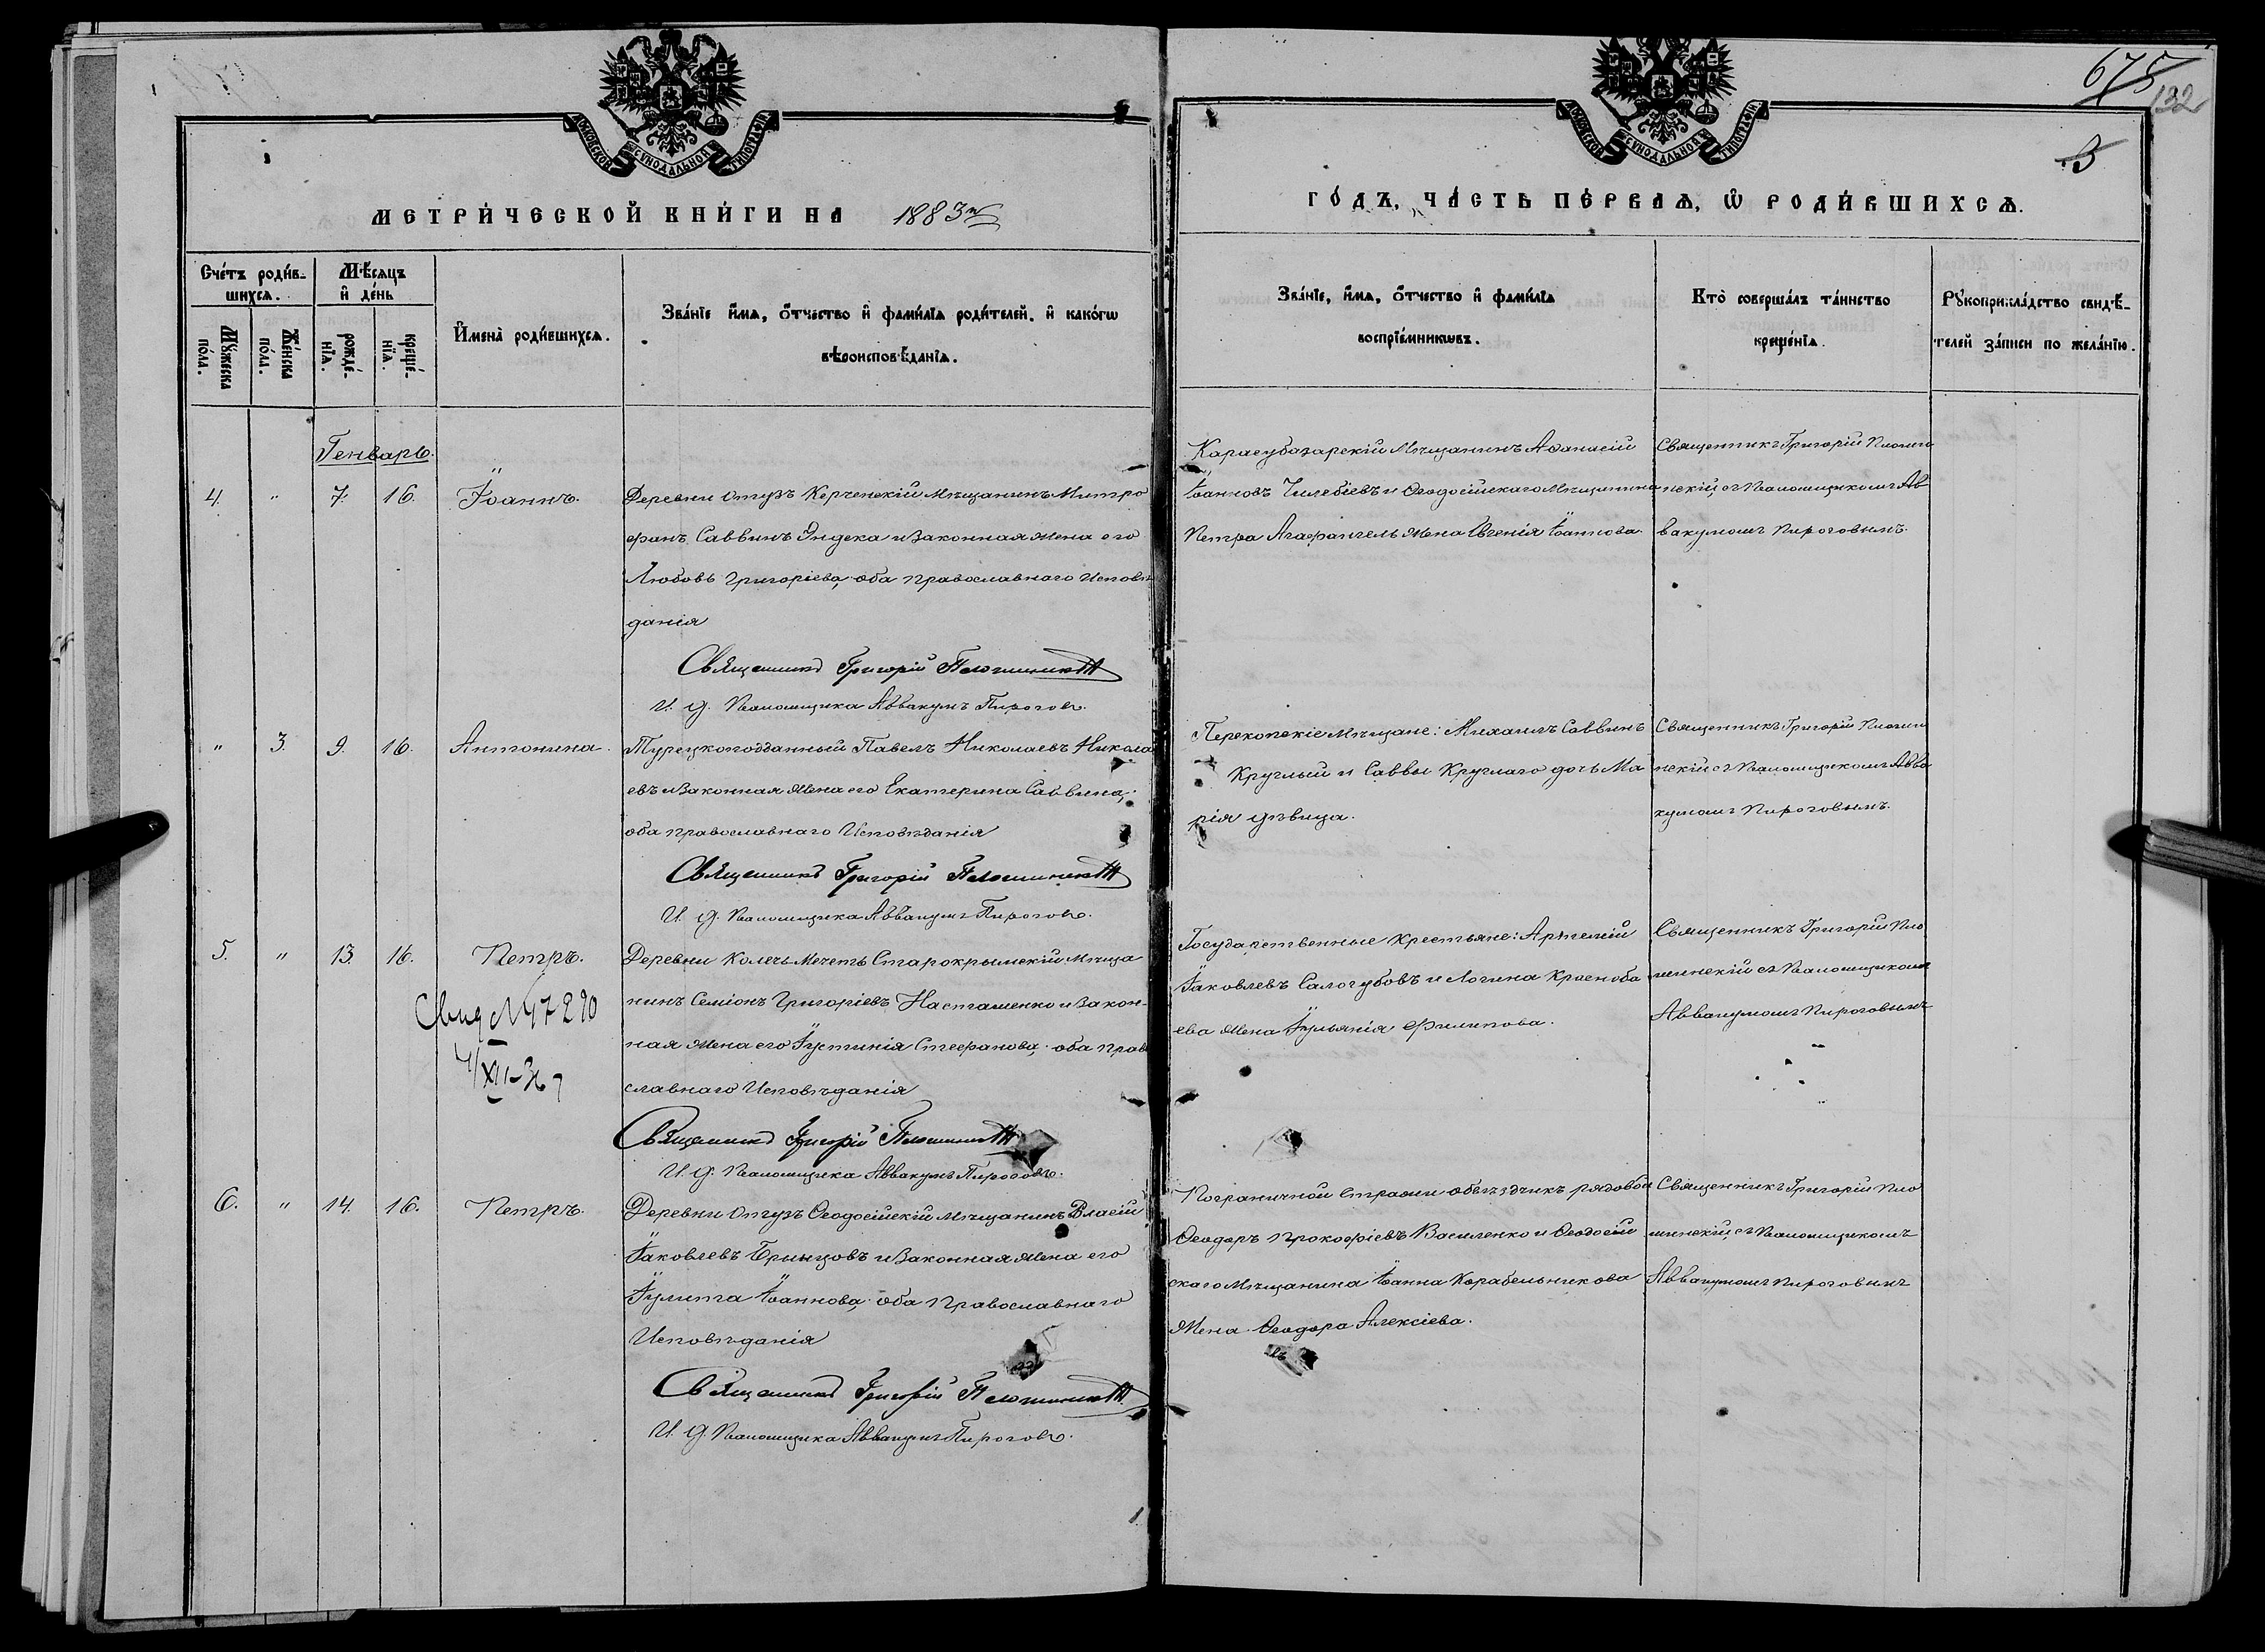 675
132
3
МОСКОВСКОЙ СѴНОДАЛЬНОЙ ТИПОГРАФІИ
МОСКОВСКОЙ СѴНОДАЛЬНОЙ ТИПОГРАФІИ
МЕТРИ́ЧЕСКОЙ КНИ́ГИ НА 1883й
ГО́ДЪ, ЧА́СТЬ ПЕ́РВАѦ, Ѽ РОДИ́ВШИХСѦ.
Сче́тъ роди́в-
шихсѧ.
Мѣ́сѧцъ
и҆ де́нь
Мꙋ́жеска
по́ла.
Же́нска
по́ла.
рожде́-
нїѧ.
креще́-
нїѧ.
И҆мена̀ роди́вшихсѧ.
Зва́нїе и҆́мѧ, ѻ҆́тчество и҆ фами́лїѧ роди́телей, и҆ како́гѡ
вѣроисповѣ́данїѧ.
Зва́нїе, и҆́мѧ, ѻ҆́тчество и҆ фами́лїѧ
воспрїе́мникѡвъ.
Кто̀ соверша́лъ та́инство
креще́нїѧ.
Рꙋкоприкла́дство свидѣ́-
телей за́писи по жела́нїю.
Генварь.
4. " 7. 16. Іоаннъ.
Деревни Отузъ Керченскій Мѣщанинъ Митро
фанъ Саввинъ Индека и Законная Жена его
Любовь Григоріева, оба православнаго Исповѣ
данія
Священникъ Григорій
И. Д. Псаломщика Аввакумъ Пироговъ.
Карасубазарскій Мѣщанинъ Аѳанасій
Іоанновъ Челебіевъ и Ѳеодосійскаго Мѣщанина
Петра Агафангель Жена Евгенія Іоаннова
Священникъ Григорій
съ Псаломщикомъ Ав
вакумомъ Пироговымъ.
" 3. 9. 16. Антонина.
Турецкоподданный Павелъ Николаевъ Никола
евъ и Законная Жена его Екатерина Саввина,
оба православнаго Исповѣданія
Священникъ Григорій
И. Д. Псаломщика Аввакумъ Пироговъ.
Перекопскіе Мѣщане: Михаилъ Саввинъ
Круглый и Саввы Круглаго дочь Ма
рія дѣвица.
Священникъ Григорій
съ Псаломщикомъ Авва
кумомъ Пироговымъ.
5. " 13 16. Петръ.
Свид №47290
4/XII-36 г
Деревни Колечь Мечеть Старокрымскій Мѣща
нинъ Семіонъ Григоріевъ Насташенко и Закон-
ная Жена его Іустинія Стефанова, оба право
славнаго Исповѣданія
Священникъ Григорій
И. Д. Псаломщика Аввакумъ Пироговъ.
Государственные Крестьяне: Артемій
Іаковлевъ Салогубовъ и Логина Красноба
ева Жена Іульянія Филипова.
Священникъ Григорій
съ Псаломщикомъ
Аввакумомъ Пироговымъ
6. " 14. 16. Петръ.
Деревни Отузъ Ѳеодосійскій Мѣщанинъ Власій
Іаковлевъ Бринцовъ и Законная Жена его
Іулита Іоаннова, оба православнаго
Исповѣданія
Священникъ Григорій
И. Д. Псаломщика Аввакумъ Пироговъ.
Пограничной Стражи объѣздчикъ рядовой
Ѳеодоръ Прокофіевъ Василенко и Ѳеодосій
скаго Мѣщанина Іоанна Корабельникова
Жена Ѳеодора Алексіева.
Священникъ Григорій
съ Псаломщикомъ
Аввакумомъ Пироговымъ